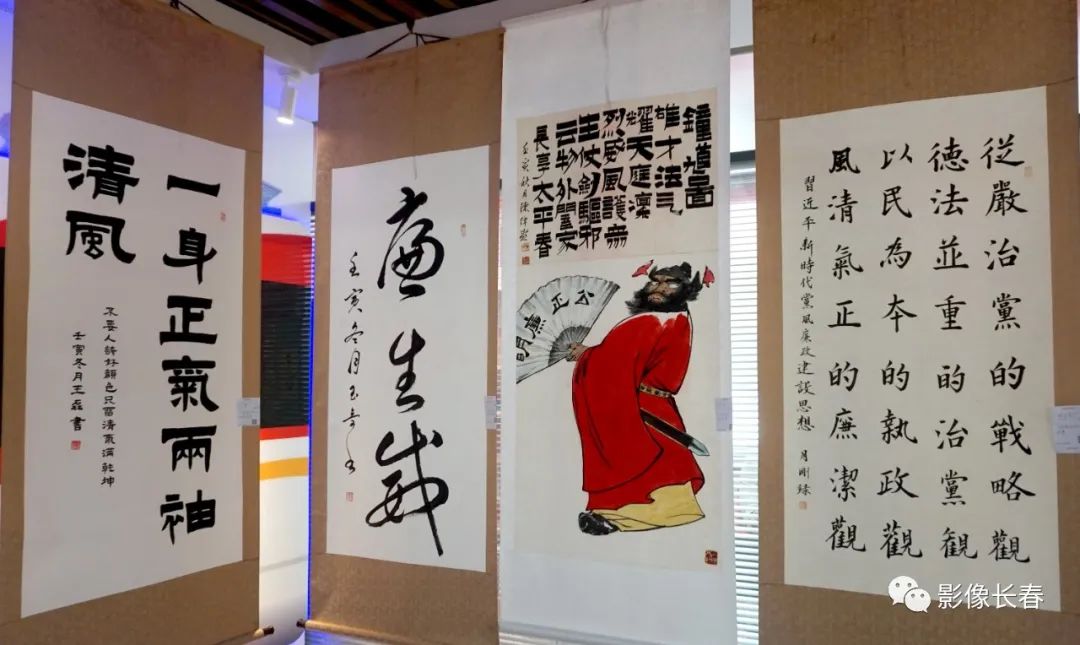 一身正氣兩袖
清風
不要人誇好顏色只留清氣滿乾坤
壬寅冬月王書
廉生威
壬寅冬月
鐘馗圖
雄才法气
耀天應凛
烈威風護衆
生仗劍驅邪
云物外闔家
長享太平春
壬寅秋月陳
公正廉明
從嚴治黨的戰略觀
德法並重的治黨観
以民為本的執政觀
風清氣正的廉潔觀
習近平新時代黨風廉政建設思想 月刚録
影像长春